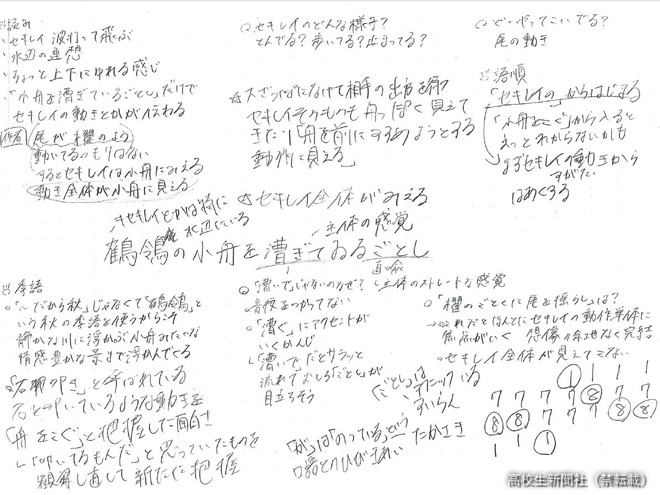 セキレイ 波打って飛ぶ
水辺の連想
ちょっと上下にゆれる感じ
「小舟を漕ぎているごとし」だけで
セキレイの動きとかが伝わる
尾が櫂のよう
動いてるつもりはない
するとセキレイは小舟にみえる
動き全体が小舟に見える
Q セキレイのどんな様子?
とんでる?歩いてる?止まってる?
大ざっぱになげて相手の出方を
セキレイそのものも舟っぽく見えて
きたり「舟を前にすすめようとする
動作に見える」
Q どーやってこいでる?
尾の動き
語順
「セキレイの」からはじまる
「小舟をこぐ」から入ると
えっとわからないかも
まずセキレイの動きから
すがた
はあくする
セキレイ全体がみえる
セキレイとかは特に
水辺にいる
主体の感覚
鶺鴒の小舟を漕ぎてゐるごとし
直喩
季語
「〜だから秋」じゃなくて「鶺鴒」と
いう秋の季語を使うからこそ
静かな川に浮かぶ小舟みたいな
情感豊かな景まで浮かんでくる
「石叩き」と呼ばれている
石を叩いているような動きを
「舟をこぐ」と把握した面白さ
「叩いてるもんだ」と思っていたものを
観察し直して新たに把握
「漕いで」じゃないのなぜ?
音便をつかってない
「漕ぐ」にアクセントが
いくかんじ
「漕いで」だとサラッと
流れてむしろ「ごとし」が
目立ちそう
主体のストレートな感覚
「ごとし」は
すいらん
「が」は「のっている」という
たかさき
「櫂のごとくに尾を揺らし」は?
これだとほんとにセキレイの動作単体に
焦点がいく 想像の余地なく完結
セキレイ全体が見えてこない
① 1 1 1
7 7 7 7 ⑧ 7 7
⑧ ⑧ 7 7 7 ⑧ ⑧
1 1 ①
高校生新聞社（禁転載）